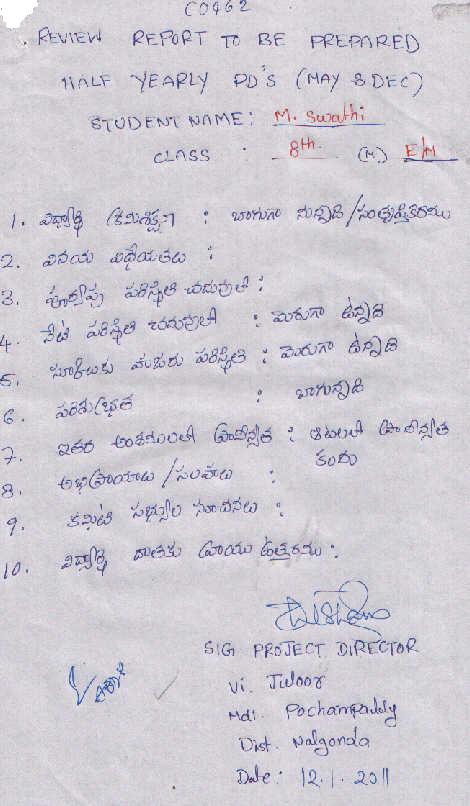 C0462
REVIEW REPORT TO BE PREPARED
HALF YEARLY PD'S (MAY & DEC)
STUDENT NAME: M. Swathi
CLASS : 8th. (M) E/M
1. విద్యార్థి క్రమశిక్షణ : బాగుగా నున్నది/సంతృప్తికరము
2. వినయ విధేయతలు :
3. పూర్వపు పరిస్థితి చదువులో :
4. నేటి పరిస్థితి చదువులో : మెరుగా ఉన్నది
5. స్కూలుకు హాజరు పరిస్థితి : మెరుగా ఉన్నది
6. పరిశుభ్రత : బాగున్నది
7. ఇతర అంశములలో ప్రావీన్యత : ఆటలలో ప్రావీన్యత కలదు
8. అభిప్రాయాలు/సలహాలు :
9. కమిటి సభ్యుల సూచనలు :
10. విద్యార్థి దాతకు వ్రాయు ఉత్తరము :
SIG PROJECT DIRECTOR
Vi. Juloor
Mdl. Pochampally
Dist. Nalgonda
Date: 12.1.2011